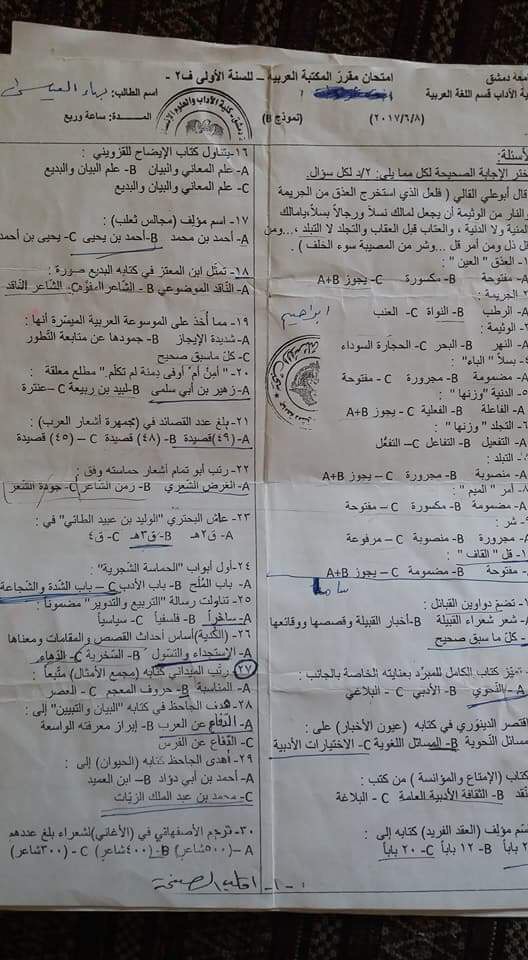 عة دمشق
ية الآداب قسم اللغة العربية
(٢٠١٧/٦/٨)
امتحان مقرر المكتبة العربية – للسنة الأولى ف٢ -
(نموذج B)
اسم الطالب:
المــدة: ساعة وربع
أسئلة:
ختر الإجابة الصحيحة لكل مما يلي: ٢/د لكل سؤال.
قال أبو علي القالي ( فلعل الذي استخرج العذق من الجريمة
النار من الوثيمة أن يجعل لمالك نسلاً ورجالاً بسلاً، يامالك
المنية ولا الدنية ، والعتاب قبل العقاب والتجلد لا التبلد ،...ومن
قل ذل ومن أمر قل ...وشر من المصيبة سوء الخلف ) :
العذق " العين " :
A- مفتوحة B- مكسورة C- يجوز A+B
الجريمة :
A- الرطب B- النواة C- العنب
ابراهيم
الوثيمة :
A- النهر B- البحر C- الحجارة السوداء
بسلاً " الباء" :
A- مضمومة B- مجرورة C- مفتوحة
الدنية "وزنها" :
A- الفاعلة B- الفعلية C- يجوز A+B
التجلد " وزنها" :
A- التفعيل B- التفاعل C- التفعّل
التبلد :
A- منصوبة B- مجرورة C- يجوز A+B
أمر " الميم " :
A- مضمومة B- مكسورة C- مفتوحة
شر :
A- مجرورة B- منصوبة C- مرفوعة
قل " القاف " :
A- مفتوحة B- مضمومة C- يجوز A+B
تضم دواوين القبائل :
A- شعر شعراء القبيلة B- أخبار القبيلة وقصصها ووقائعها
كل ما سبق صحيح
تميّز كتاب الكامل للمبرّد بعنايته الخاصة بالجانب :
A- النحوي B- الأدبي C- البلاغي
اقتصر الدينوري في كتابه (عيون الأخبار) على :
مسائل النحوية B- المسائل اللغوية C- الاختيارات الأدبية
كتاب (الإمتاع والمؤانسة ) من كتب :
نقد B- الثقافة الأدبية العامة C- البلاغة
مؤلف (العقد الفريد) كتابه إلى :
باباً B- ١٢ باباً C- ٢٠ باباً
١٦- يتناول كتاب الإيضاح للقزويني :
A- علم المعاني والبيان B- علم البيان والبديع
C- علم المعاني والبيان والبديع
١٧- اسم مؤلف (مجالس ثعلب) :
A- أحمد بن محمد B- أحمد بن يحيى C- يحيى بن أحمد
١٨- تمثّل ابن المعتز في كتابه البديع صورة :
A- الناقد الموضوعي B- الشاعر المفوّه C- الشاعر الناقد
١٩- مما أخذ على الموسوعة العربية الميسّرة أنها :
A- شديدة الإيجاز B- جمودها عن متابعة التطور
C- كل ماسبق صحيح
٢٠- " أمن أم أوفى دمنة لم تكلم " مطلع معلقة :
A- زهير بن أبي سلمى B- لبيد بن ربيعة C- عنترة
٢١- بلغ عدد القصائد في (جمهرة أشعار العرب):
A- (٤٩) قصيدة B- (٤٨) قصيدة C- (٤٥) قصيدة
٢٢- رتب أبو تمام أشعار حماسته وفق :
A- الغرض الشعري B- زمن الشاعر C- جودة الشعر
٢٣- عاش البحتري "الوليد بن عبيد الطائي" في :
A- ق٢هـ B- ق٣هـ C- ق٤
٢٤- أول أبواب "الحماسة الشجرية" :
A- باب المُلَح B- باب الأدب C – باب الشدة والشجاعة
٢٥- تناولت رسالة "التربيع والتدوير" مضموناً :
A- ساخراً B- فلسفياً C- سياسياً
٢٦- (الكدية) أساس أحداث القصص والمقامات ومعناها
A- الإستجداء والتسول B- السخرية C- الدهاء
٢٧- رتّب الميداني كتابه (مجمع الأمثال) متّبعاً :
A- المناسبة B- حروف المعجم C- العصر
٢٨- هدف الجاحظ في كتابه "البيان والتبيين" إلى :
A- الدفاع عن العرب B- إبراز معرفته الواسعة
C- الدفاع عن الفرس
٢٩- أهدى الجاحظ كتابه (الحيوان) إلى :
A- أحمد بن أبي دؤاد B- ابن العميد
C- محمد بن عبد الملك الزيات
٣٠- ترجم الأصفهاني في (الأغاني) لشعراء بلغ عددهم
A- (٥٠٠شاعر) B- (٤٠٠شاعر) C- (٣٠٠شاعر)
-١-
اقلب الصفحة